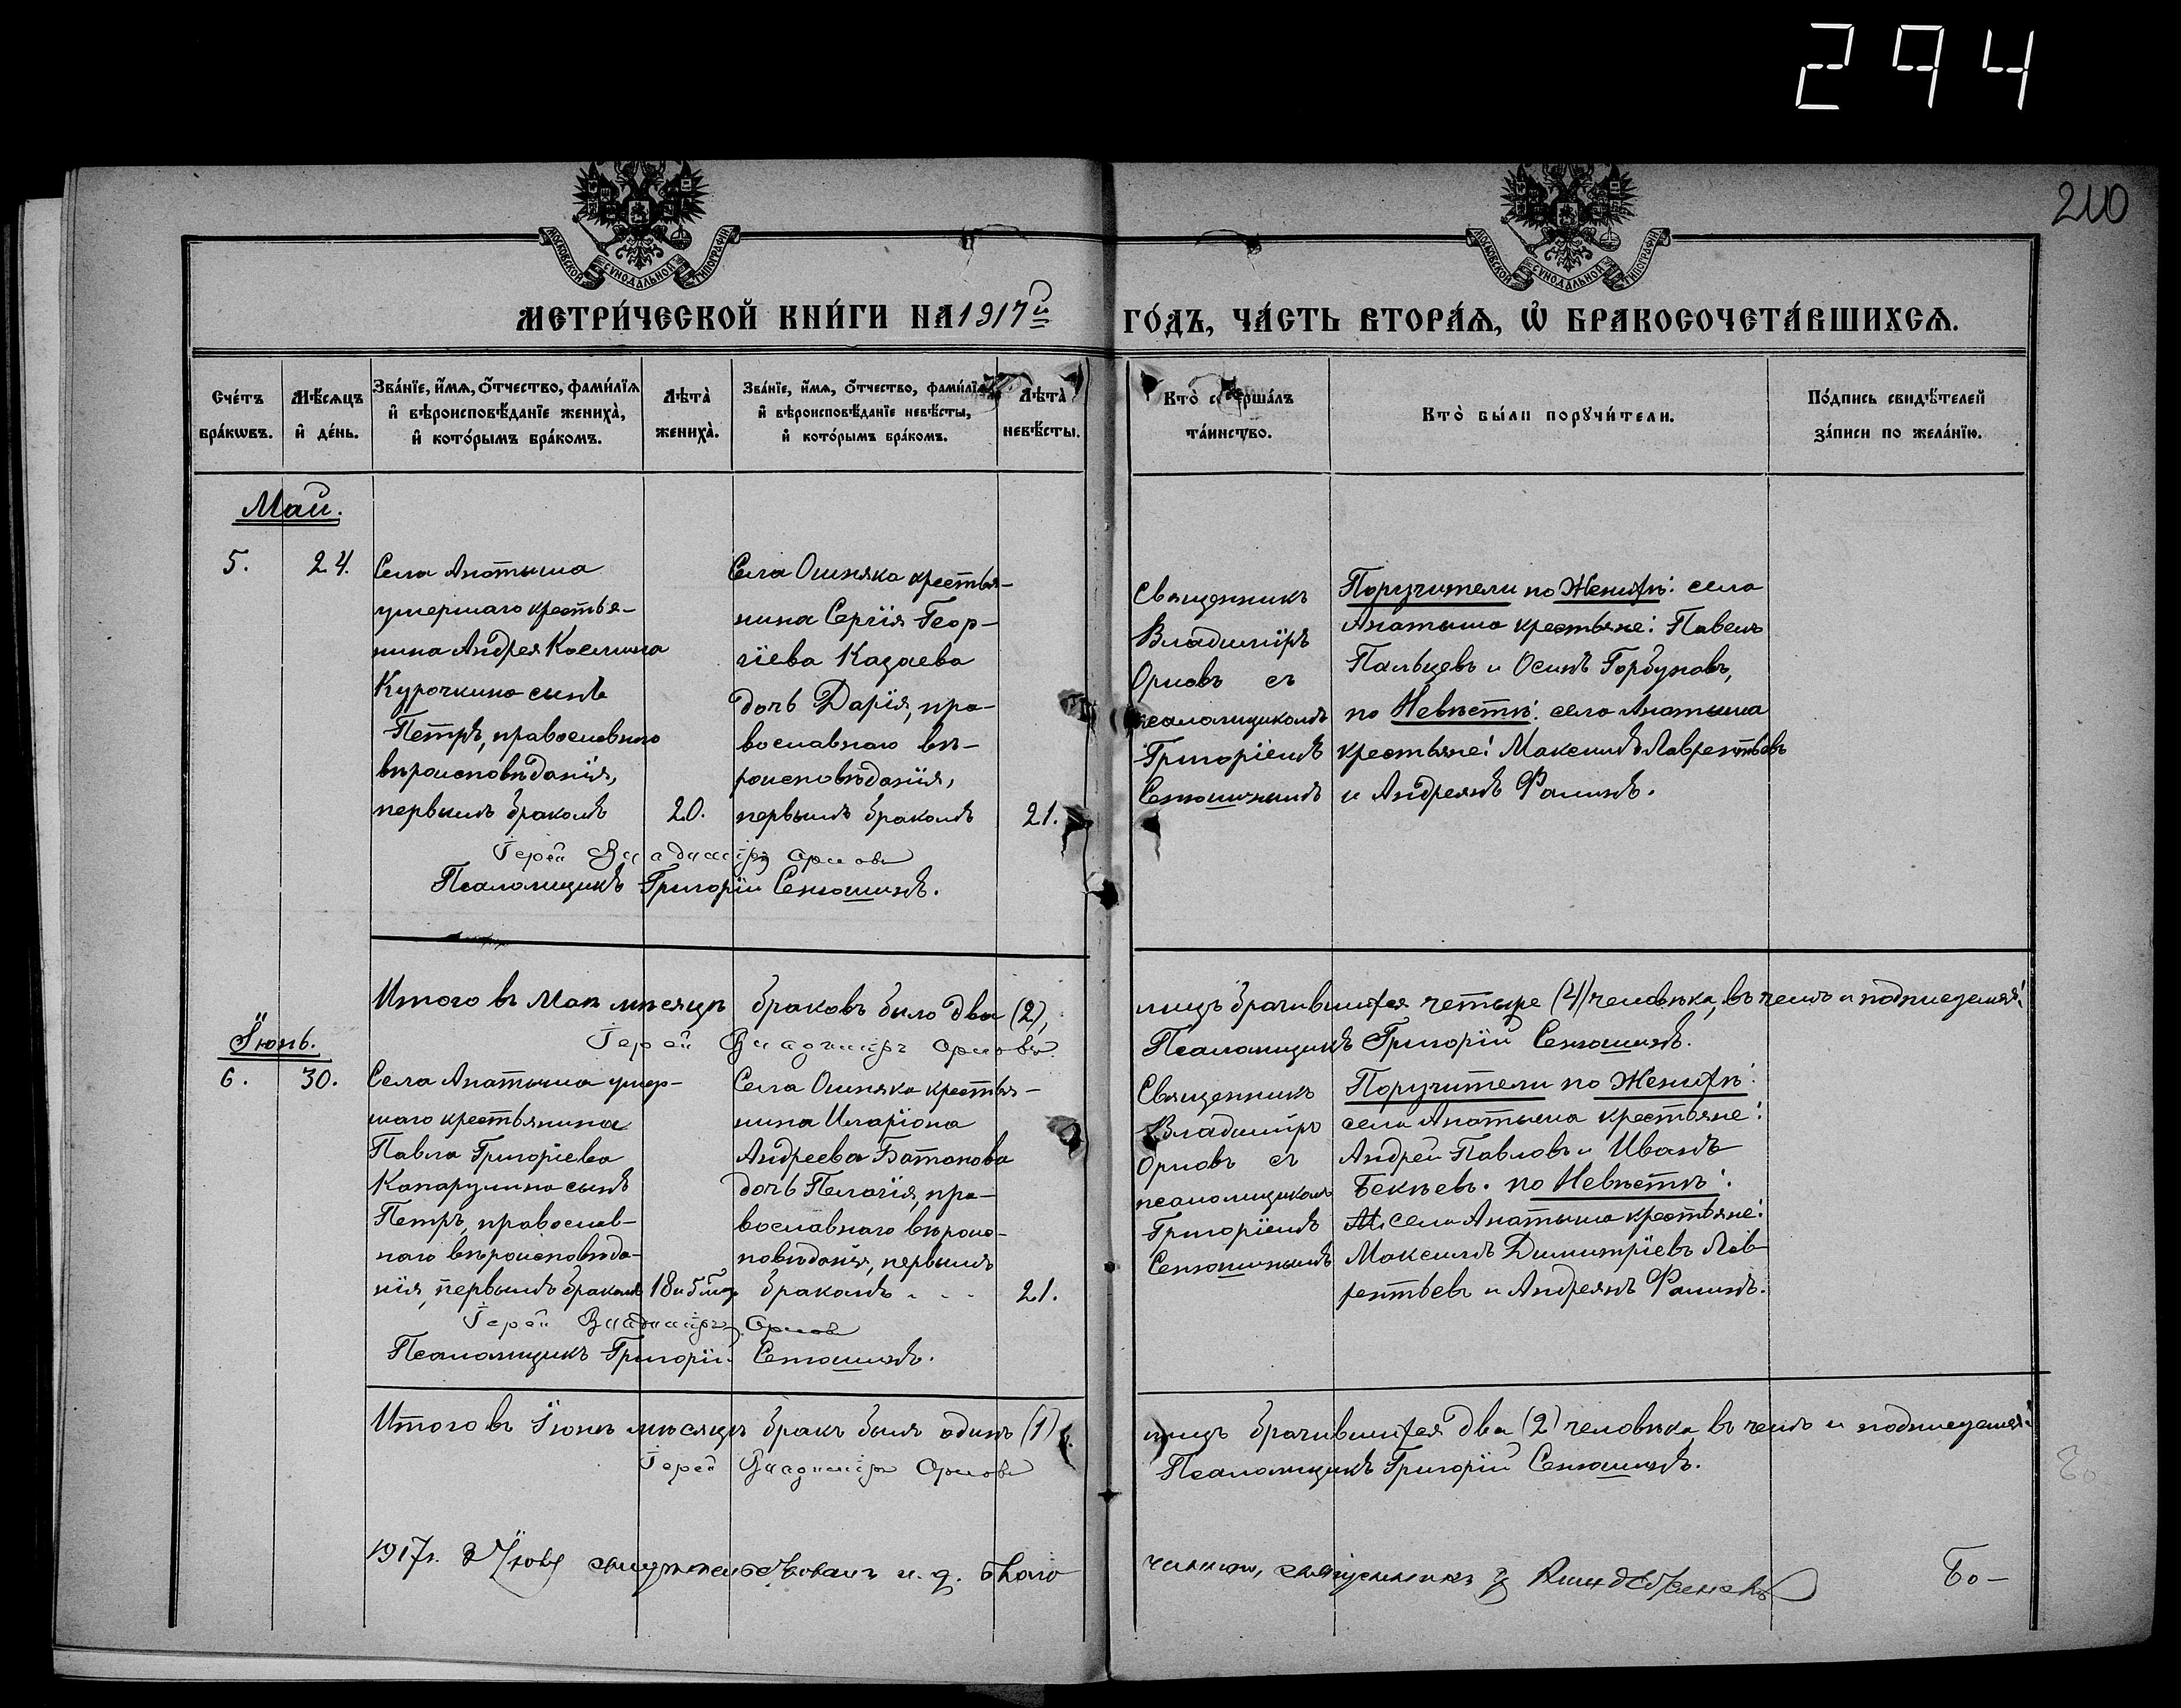 294
210
МОСКОВСКОЙ СѴНОДАЛЬНОЙ ТИПОГРАФІИ
МОСКОВСКОЙ СѴНОДАЛЬНОЙ ТИПОГРАФІИ
МЕТРИ́ЧЕСКОЙ КНИ́ГИ НА 1917й ГО́ДЪ, ЧА́СТЬ ВТОРА́Ѧ, Ѽ БРАКОСОЧЕТА́ВШИХСѦ.
Сче́тъ
бра́кѡвъ.
Мѣ́сѧцъ
и҆ де́нь.
Зва́нїе, и҆́мѧ, ѻ҆́тчество, фами́лїѧ
и҆ вѣроисповѣ́данїе жениха̀,
и҆ кото́рымъ бра́комъ.
Лѣта̀
жениха̀.
Зва́нїе, и҆́мѧ, ѻ҆́тчество, фами́лїѧ
и҆ вѣроисповѣ́данїе невѣ́сты,
и҆ кото́рымъ бра́комъ.
Лѣта̀
невѣ́сты.
Кто̀ соверша́лъ
та́инство.
Кто̀ бы́ли порꙋчи́тели.
По́дпись свидѣ́телей
за́писи по жела́нїю.
Май.
5.
24.
Села Анатыша
умершаго крестья-
нина Андрея Космина
Курочкина сынъ
Петръ, православнаго
вѣроисповѣданія,
первымъ бракомъ
20.
Села Ошняка крестья-
нина Сергія Геор-
гіева Казаева
дочь Дарія, пра-
вославнаго вѣ-
роисповѣданія,
первымъ бракомъ
21.
Священникъ
Владиміръ
Орловъ съ
псаломщикомъ
Григоріемъ
Сенюшинымъ
Поручители по Женихѣ: села
Анатыша крестьяне: Павелъ
Пальцевъ и Осипъ Горбуновъ,
по Невѣстѣ: села Анатыша
крестьяне: Максимъ Лаврентьевъ
и Андреянъ Фаминъ.
Іерей Владиміръ Орловъ
Псаломщикъ Григорій Сенюшинъ.
Итого въ Маѣ мѣсяцѣ браковъ было два (2), лицъ брачившихся четыре (4) человѣка, въ чемъ и подписуемся:
Іерей Владиміръ Орловъ. Псаломщикъ Григорій Сенюшинъ.
Іюнь.
6.
30.
Села Анатыша умер-
шаго крестьянина
Павла Григоріева
Капарулина сынъ
Петръ, православ-
наго вѣроисповѣда-
нія, первымъ бракомъ
18 и 5 мѣс.
Села Ошняка крестья-
нина Иларіона
Андреева Батанова
дочь Пелагія, пра-
вославнаго вѣроис-
повѣданія, первымъ
бракомъ . . .
21.
Священникъ
Владиміръ
Орловъ съ
псаломщикомъ
Григоріемъ
Сенюшинымъ
Поручители по Женихѣ:
села Анатыша крестьяне:
Андрей Павловъ и Иванъ
Бекѣевъ. по Невѣстѣ:
села Анатыша крестьяне:
Максимъ Димитріевъ Лав-
рентьевъ и Андреянъ Фаминъ.
Іерей Владиміръ Орловъ
Псаломщикъ Григорій Сенюшинъ.
Итого въ Іюнѣ мѣсяцѣ бракъ былъ одинъ (1), лицъ брачившихся два (2) человѣка, въ чемъ и подписуемся:
Іерей Владиміръ Орловъ Псаломщикъ Григорій Сенюшинъ.
1917г. свидѣтельствовалъ и. д. благочиннаго, священникъ
Бо-